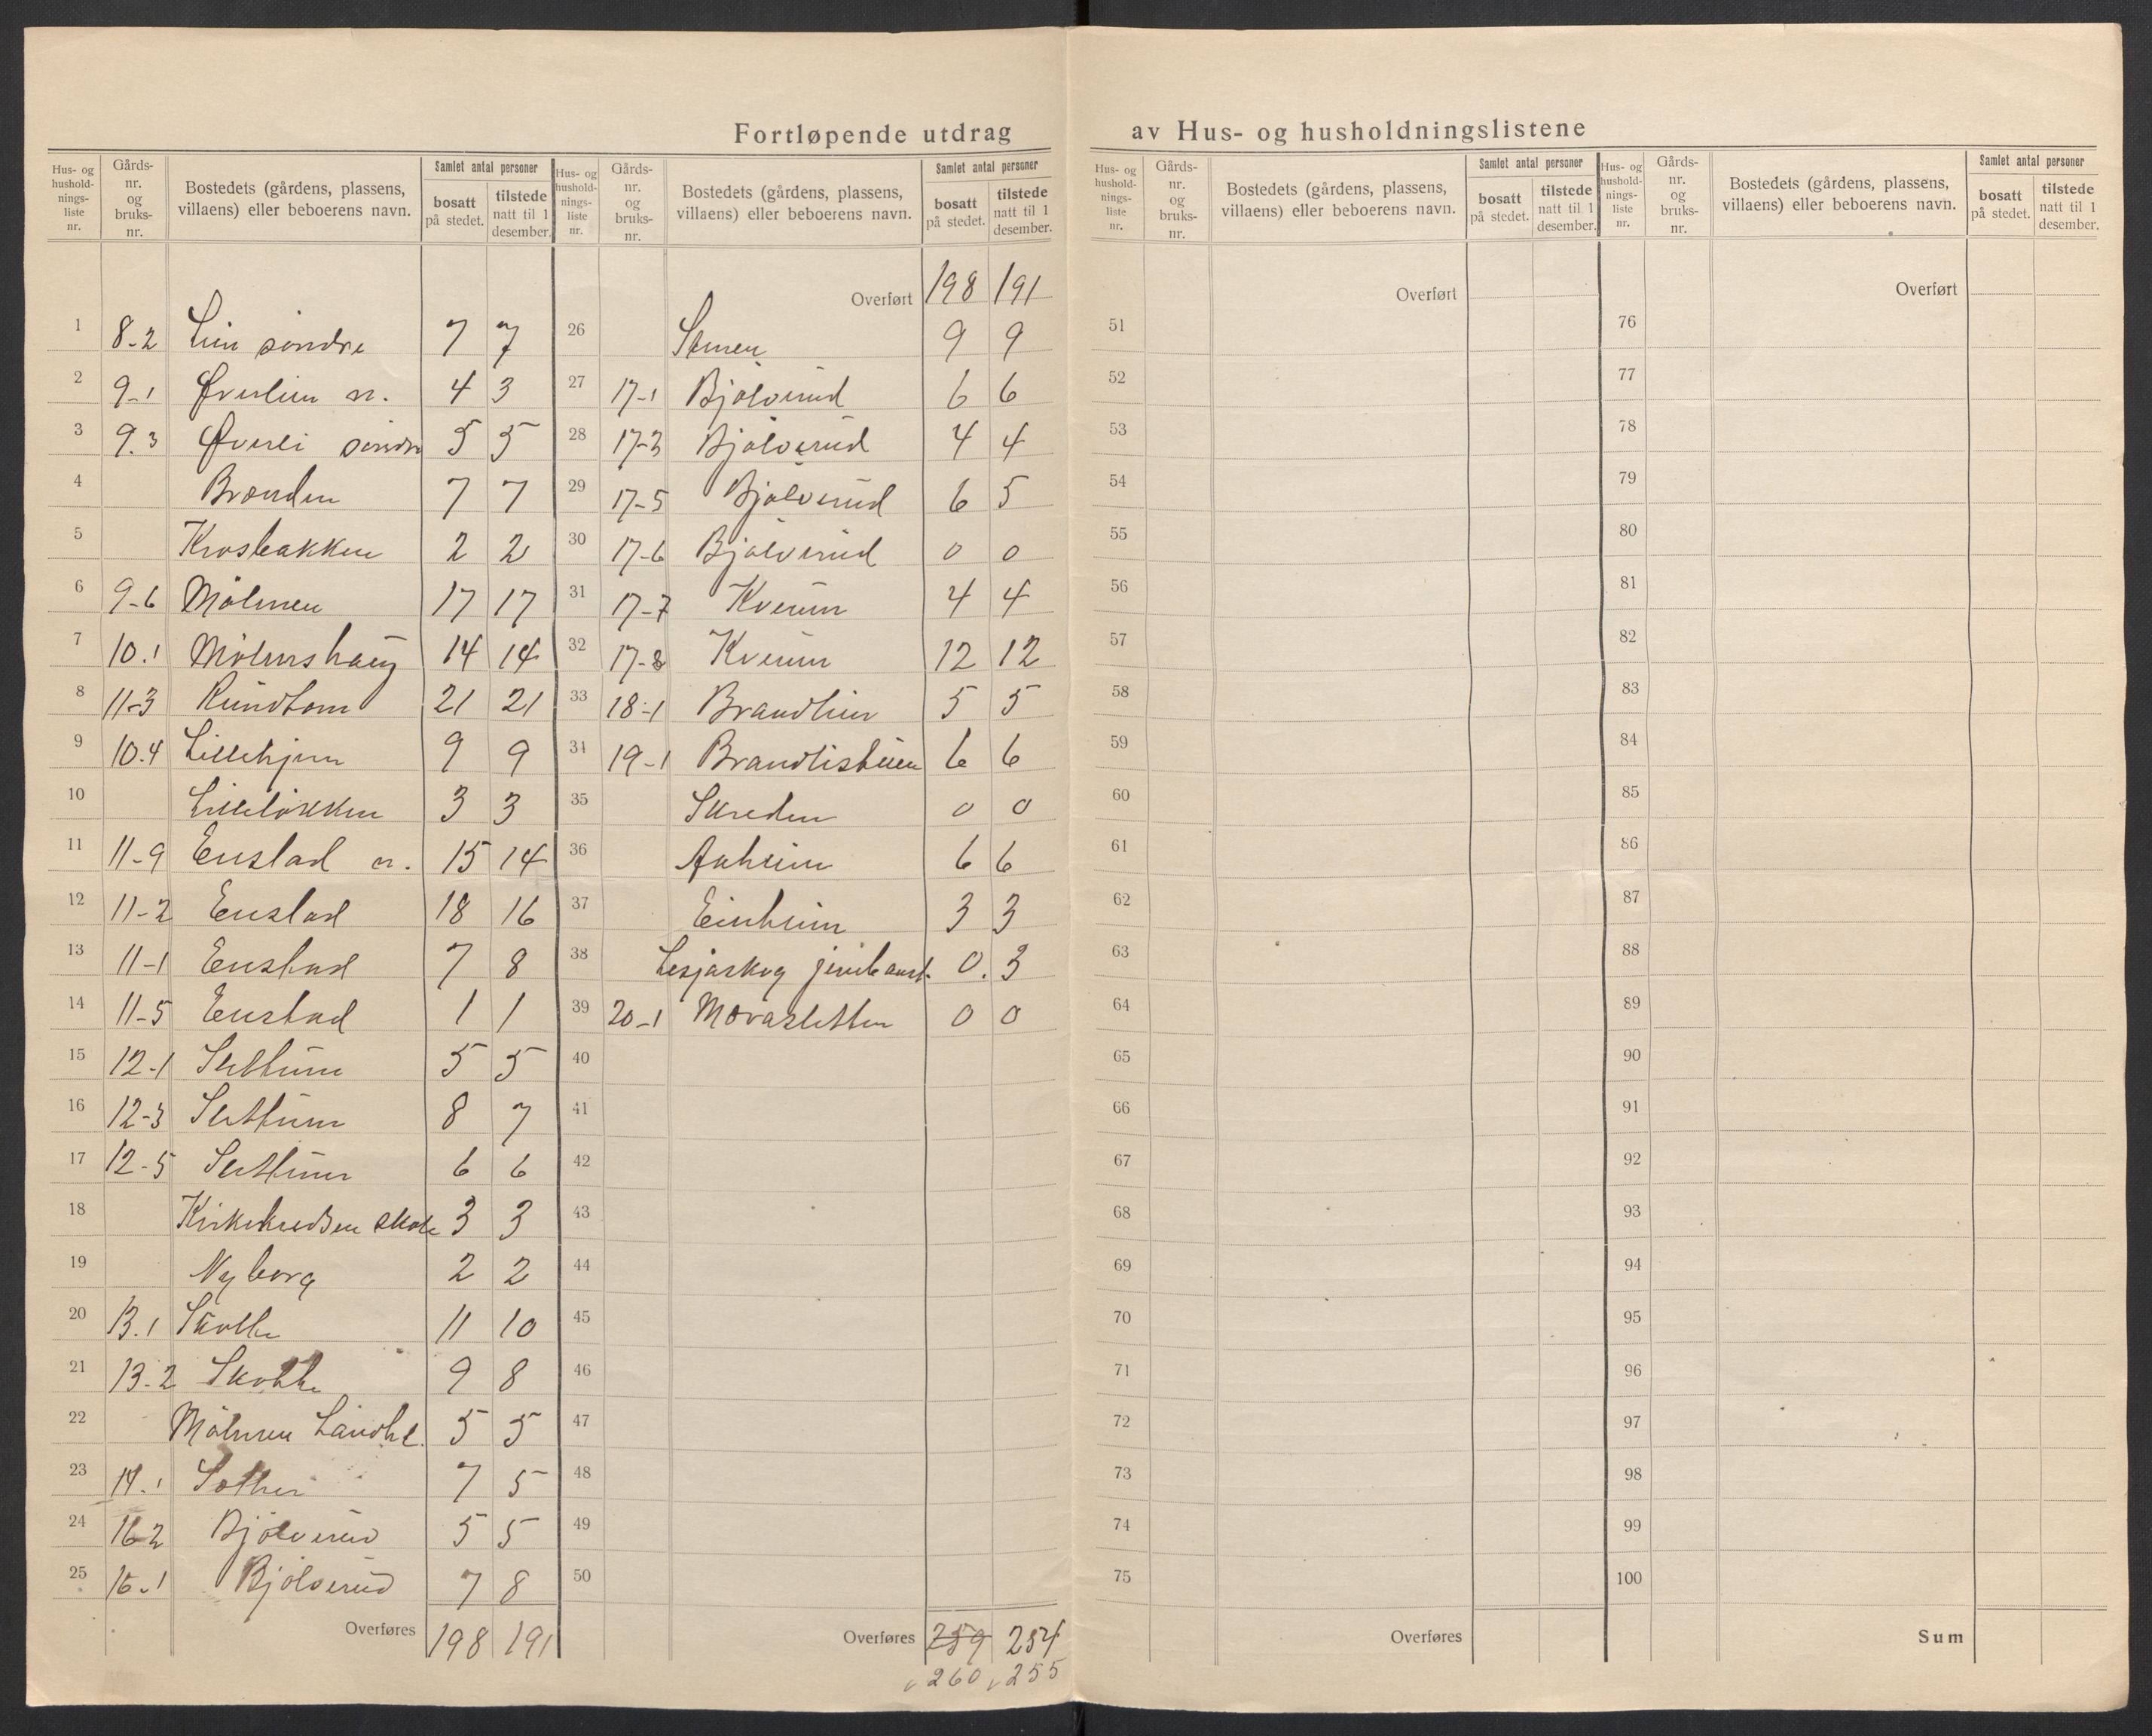 Fortløpende utdrag av Hus- og husholdningslistene
Hus- og hushold-nings-liste nr. Gårds-nr. og bruks-nr. Bostedets (gårdens, plassens, villaens) eller beboerens navn. Samlet antal personer bosatt på stedet. tilstede natt til 1 desember.
1 8-2 Lien söndre 7 7
2 9-1 Øverlien n. 4 3
3 9.3 Øverli söndre 5 5
4 Brænden 7 7
5 Krosbakken 2 2
6 9-6 Mölmen 17 17
7 10.1 Mölmshaug 14 14
8 11-3 Rundtom 21 21
9 10.4 Lillehjem 9 9
10 Lillelökken 3 3
11 11-9 Enstad n. 15 14
12 11-2 Enstad 18 16
13 11-1 Enstad 7 8
14 11-5 Enstad 1 1
15 12-1 Slettum 5 5
16 12-3 Slettum 8 7
17 12-5 Slettum 6 6
18 Kirkekredsen skole 3 3
19 Nyborg 2 2
20 13.1 Skotte 11 10
21 13-2 Skotte 9 8
22 Mölmen Landh. 5 5
23 14.1 7 5
24 16-2 Bjölverud 5 5
25 16-1 Bjölverud 7 8
Overføres 198 191
Hus- og hushold-nings-liste nr. Gårds-nr. og bruks-nr. Bostedets (gårdens, plassens, villaens) eller beboerens navn. Samlet antal personer bosatt på stedet. tilstede natt til 1 desember.
Overført 198 191
26 9 9
27 17-1 Bjölverud 6 6
28 17-3 Bjölverud 4 4
29 17-5 Bjölverud 6 5
30 17-6 Bjölverud 0 0
31 17-7 Kverum 4 4
32 17-8 Kverum 12 12
33 18-1 Brandlien 5 5
34 19-1 Brandlistuen 6 6
35 Skreden 0 0
36 Aaheim 6 6
37 Einheim 3 3
38 Lesjaskog jernb. 0. 3
39 20-1 Moraslettten 0 0
40
41
42
43
44
45
46
47
48
49
50
Overføres 259 254
260 255
Hus- og hushold-nings-liste nr. Gårds-nr. og bruks-nr. Bostedets (gårdens, plassens, villaens) eller beboerens navn. Samlet antal personer bosatt på stedet. tilstede natt til 1 desember.
Overført
51
52
53
54
55
56
57
58
59
60
61
62
63
64
65
66
67
68
69
70
71
72
73
74
75
Overføres
Hus- og hushold-nings-liste nr. Gårds-nr. og bruks-nr. Bostedets (gårdens, plassens, villaens) eller beboerens navn. Samlet antal personer bosatt på stedet. tilstede natt til 1 desember.
Overført
76
77
78
79
80
81
82
83
84
85
86
87
88
89
90
91
92
93
94
95
96
97
98
99
100
Sum